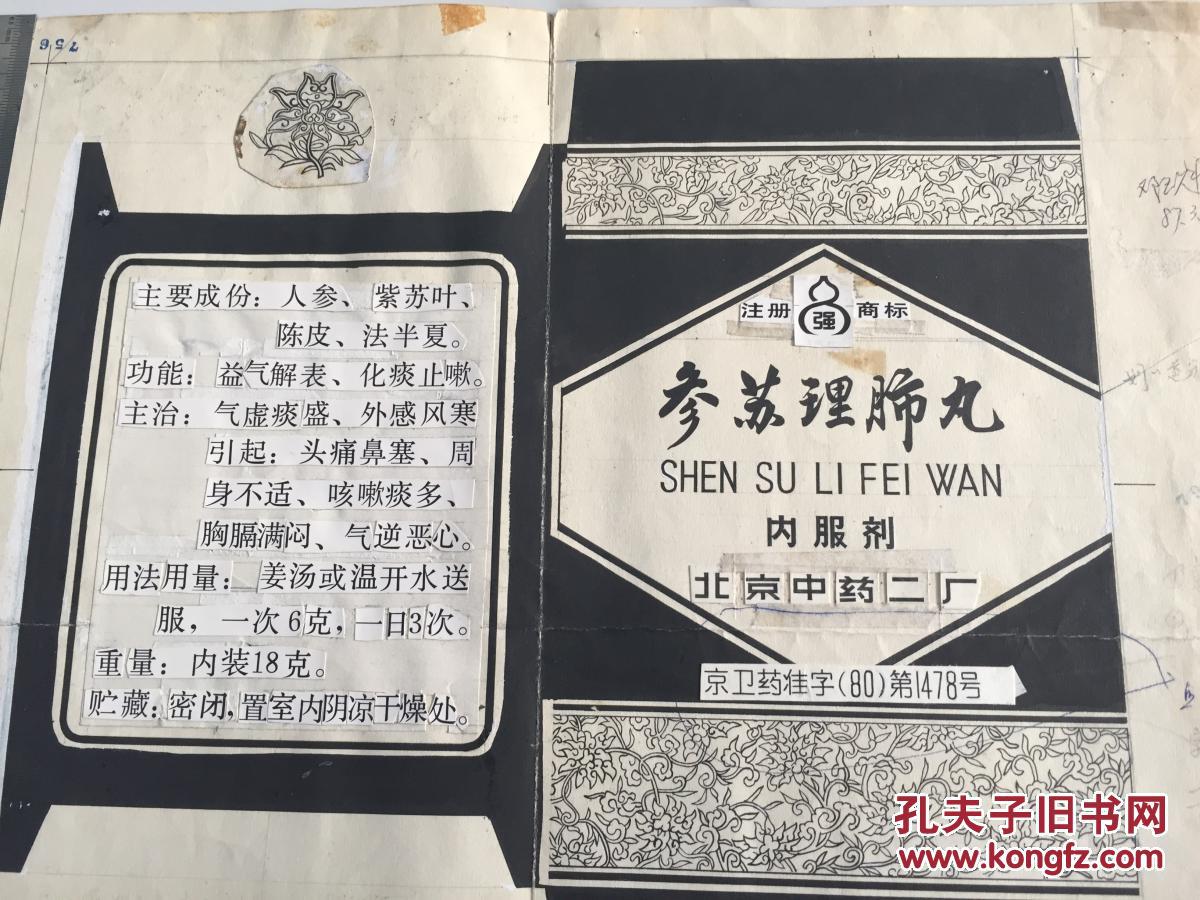 756
主要成份：人参、紫苏叶、
陈皮、法半夏。
功能：益气解表、化痰止嗽。
主治：气虚痰盛、外感风寒
引起：头痛鼻塞、周
身不适、咳嗽痰多、
胸膈满闷、气逆恶心。
用法用量：姜汤或温开水送
服，一次6克，一日3次。
重量：内装18克。
贮藏：密闭，置室内阴凉干燥处。
注册 强 商标
参苏理肺丸
SHEN SU LI FEI WAN
内服剂
北京中药二厂
京卫药准字(80)第1478号
孔夫子旧书网
www.kongfz.com